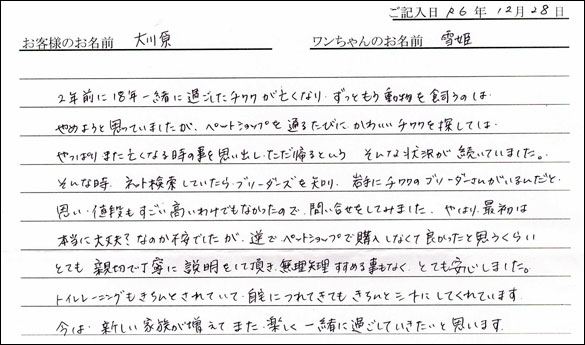 ご記入日 R6年 12月 28日
お客様のお名前 大川原 ワンちゃんのお名前 雪姫
2年前に18年一緒に過ごしたチワワが亡くなり、ずっともう動物を飼うのは
やめようと思っていましたが、ペットショップを通るたびに かわいいチワワを探しては
やっぱりまた亡くなる時の事を思い出し、ただ帰るという そんな状況が続いていました。
そんな時、ネット検索していたら、ブリーダーズを知り、岩手にチワワのブリーダーさんがいるんだと
思い、値段もすごい高いわけでもなかったので、問い合せをしてみました。やはり、最初は
本当に大丈夫?なのか不安でしたが、逆でペットショップで購入しなくて良かったと思うくらい
とても 親切で丁寧に 説明をして頂き、無理矢理すすめる事もなく、とても安心しました。
トイレトレーニングもきちんとされていて、自宅につれてきてもきちんとシートにしてくれています。
今は、新しい家族が増えて また、楽しく 一緒に過ごしていきたいと思います。